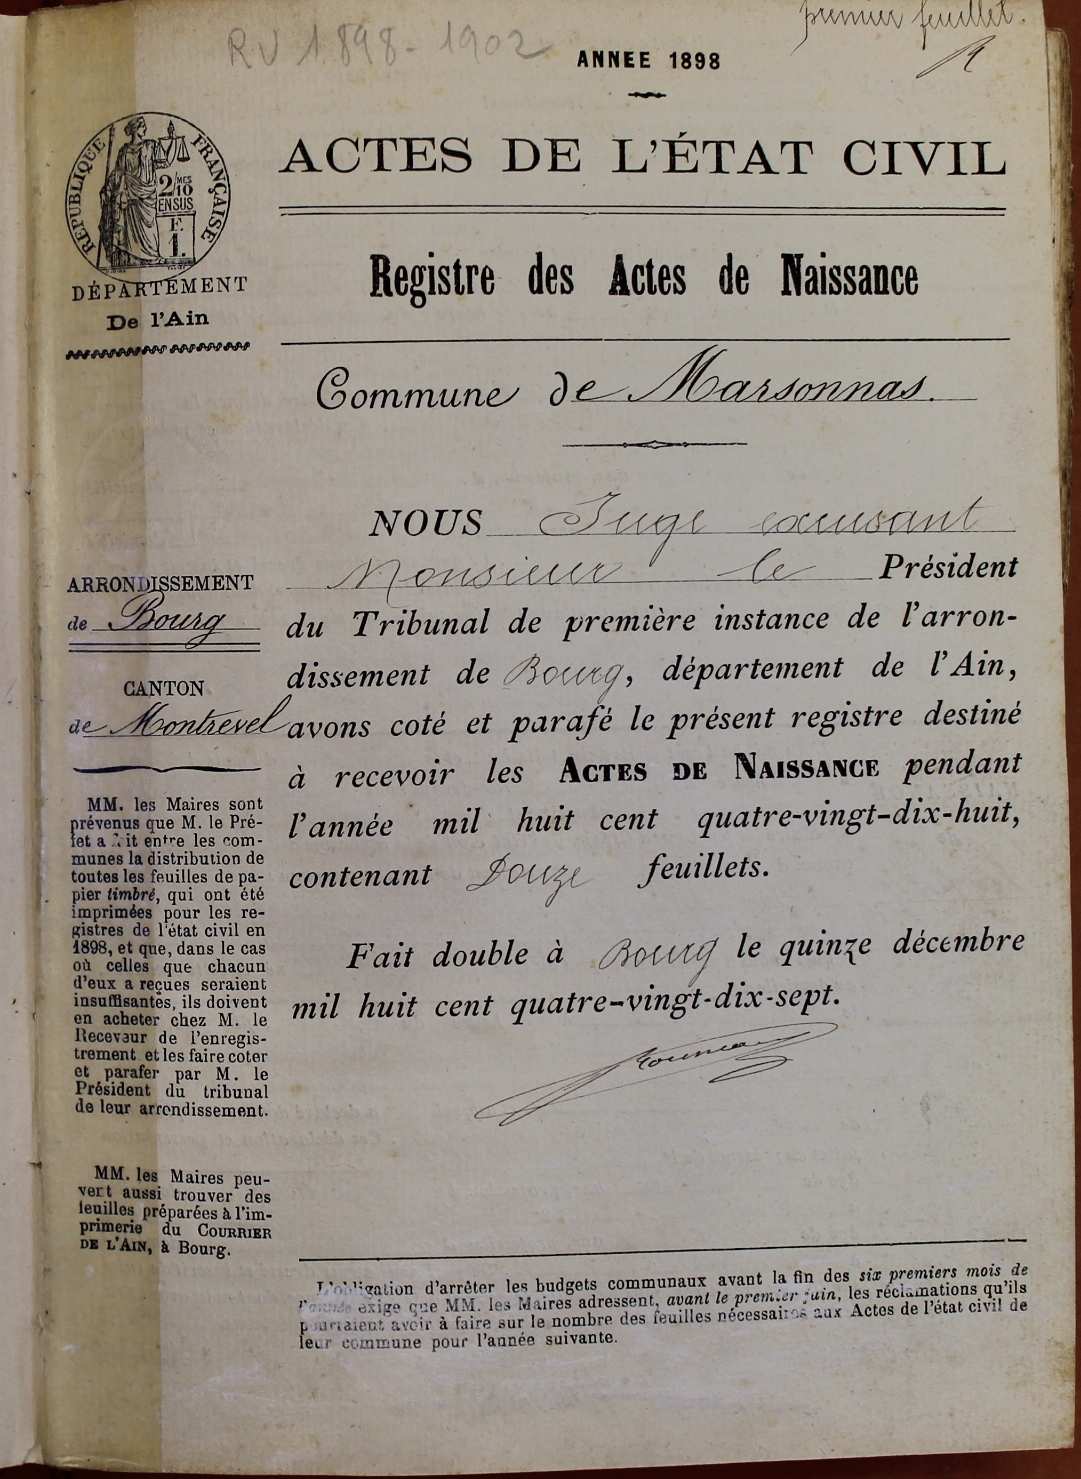 premier feuillet.
RV 1898-1902
ANNEE 1898
RÉPUBLIQUE FRANÇAISE
2/MES
10
EN SUS
F.
1.
DÉPARTEMENT
De l'Ain
ACTES DE L'ÉTAT CIVIL
Registre des Actes de Naissance
Commune de Marsonnas.
ARRONDISSEMENT
de Bourg
CANTON
de Montrevel
MM. les Maires sont
prévenus que M. le Pré-
fet a fait entre les com-
munes la distribution de
toutes les feuilles de pa-
pier timbré, qui ont été
imprimées pour les re-
gistres de l'état civil en
1898, et que, dans le cas
où celles que chacun
d'eux a reçues seraient
insuffisantes, ils doivent
en acheter chez M. le
Receveur de l'enregis-
trement et les faire coter
et parafer par M. le
Président du tribunal
de leur arrondissement.
MM. les Maires peu-
vent aussi trouver des
feuilles préparées à l'im-
primerie du COURRIER
DE L'AIN, à Bourg.
NOUS Juge excusant
Monsieur le Président
du Tribunal de première instance de l'arron-
dissement de Bourg, département de l'Ain,
avons coté et parafé le présent registre destiné
à recevoir les ACTES DE NAISSANCE pendant
l'année mil huit cent quatre-vingt-dix-huit,
contenant Douze feuillets.
Fait double à Bourg le quinze décembre
mil huit cent quatre-vingt-dix-sept.
L'obligation d'arrêter les budgets communaux avant la fin des six premiers mois de
l'année exige que MM. les Maires adressent, avant le premier juin, les réclamations qu'ils
pourraient avoir à faire sur le nombre des feuilles nécessaires aux Actes de l'état civil de
leur commune pour l'année suivante.